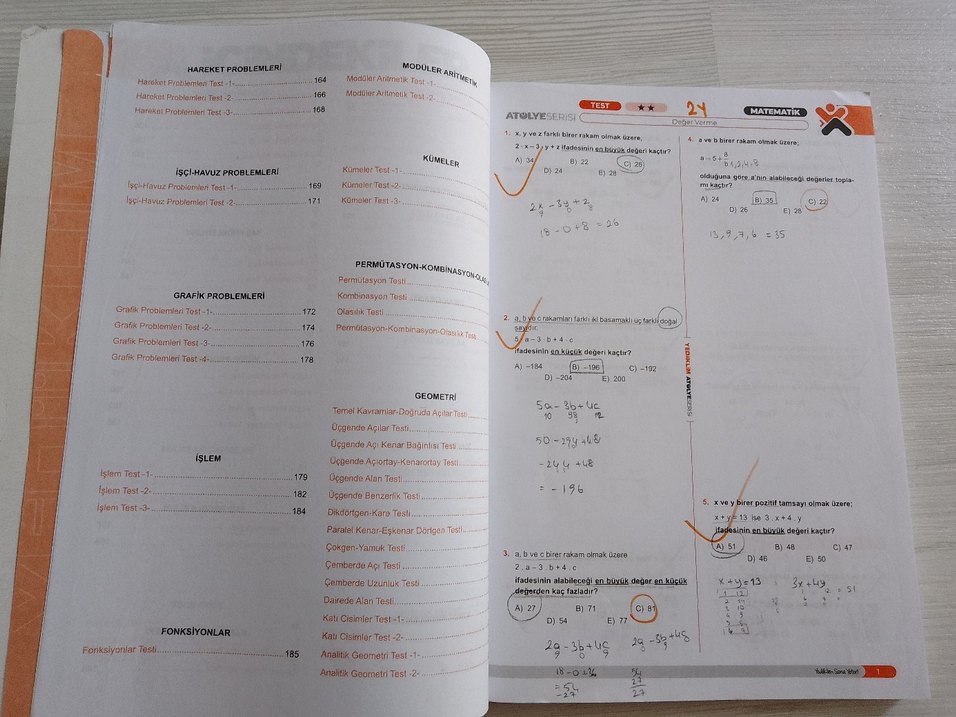 HAREKET PROBLEMLERİ
Hareket Problemleri Test -1- 164
Hareket Problemleri Test -2- 166
Hareket Problemleri Test -3- 168
İŞÇİ-HAVUZ PROBLEMLERİ
İşçi-Havuz Problemleri Test -1- 169
İşçi-Havuz Problemleri Test -2- 171
GRAFİK PROBLEMLERİ
Grafik Problemleri Test -1- 172
Grafik Problemleri Test -2- 174
Grafik Problemleri Test -3- 176
Grafik Problemleri Test -4- 178
İŞLEM
İşlem Test -1- 179
İşlem Test -2- 182
İşlem Test -3- 184
FONKSİYONLAR
Fonksiyonlar Testi 185
MODÜLER ARİTMETİK
Modüler Aritmetik Test -1-
Modüler Aritmetik Test -2-
KÜMELER
Kümeler Test -1-
Kümeler Test -2-
Kümeler Test -3-
PERMÜTASYON-KOMBİNASYON-OLAS
Permütasyon Testi
Kombinasyon Testi
Olasılık Testi
Permütasyon-Kombinasyon-Olasılık Testi
GEOMETRİ
Temel Kavramlar-Doğruda Açılar Testi
Üçgende Açılar Testi
Üçgende Açı Kenar Bağıntısı Testi
Üçgende Açıortay-Kenarortay Testi
Üçgende Alan Testi
Üçgende Benzerlik Testi
Dikdörtgen-Kare Testi
Paralel Kenar-Eşkenar Dörtgen Testi
Çokgen-Yamuk Testi
Çemberde Açı Testi
Çemberde Uzunluk Testi
Dairede Alan Testi
Katı Cisimler Test -1-
Katı Cisimler Test -2-
Analitik Geometri Test -1-
Analitik Geometri Test -2-
TEST
24
MATEMATİK
ATÖLYESERİSİ
Değer Verme
1. x, y ve z farklı birer rakam olmak üzere,
2 · x – 3 · y + z ifadesinin en büyük değeri kaçtır?
A) 34 B) 22 C) 26
D) 24 E) 28
2x – 3y + z
9 0 8
18 – 0 + 8 = 26
2. a, b ve c rakamları farklı iki basamaklı üç farklı doğal
sayıdır.
5 · a – 3 · b + 4 · c
ifadesinin en küçük değeri kaçtır?
A) –184 B) –196 C) –192
D) –204 E) 200
5a – 3b + 4c
10 98 12
50 – 294 + 48
– 244 + 48
= – 196
3. a, b ve c birer rakam olmak üzere
2 . a – 3 . b + 4 . c
ifadesinin alabileceği en büyük değer en küçük
değerden kaç fazladır?
A) 27 B) 71 C) 81
D) 54 E) 77
2a – 3b + 4c
9 0 9
18 – 0 + 36
= 54
– 27
54
27
27
4. a ve b birer rakam olmak üzere;
a = 5 + 8
b 1, 2, 4, 8
olduğuna göre a'nın alabileceği değerler topla-
mı kaçtır?
A) 24 B) 35 C) 22
D) 26 E) 28
13, 9, 7, 6 = 35
YEDİİKLİM ATÖLYESERİSİ
5. x ve y birer pozitif tamsayı olmak üzere;
x + y = 13 ise 3 . x + 4 . y
ifadesinin en büyük değeri kaçtır?
A) 51 B) 48 C) 47
D) 46 E) 50
x + y = 13
3x + 4y
= 51
1 12
1